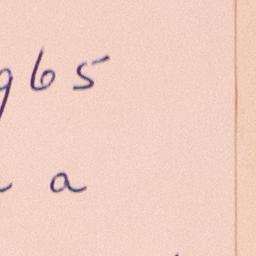 965
a